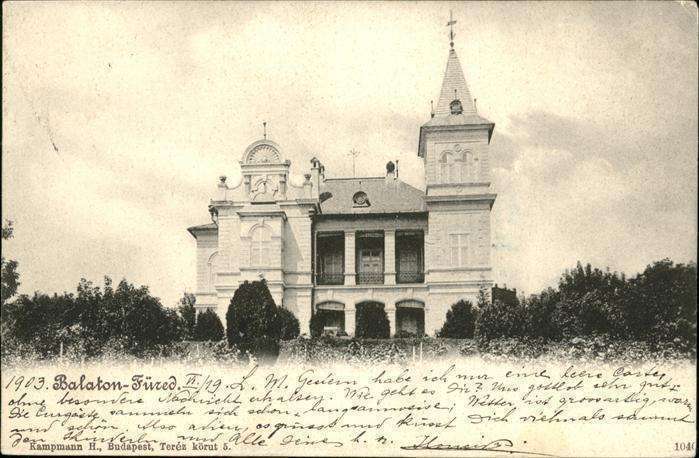 1903. Balaton-Füred. VI/19. L. M. Gestern habe ich nur eine leere Carte
ohne besondere Nachricht erhalten. Wie geht es Dir? Uns gottlob sehr gut.
Die Curgäste sammeln sich schon langsam Wetter ist grossartig, warm
und schön. Also adieu, es grüsst und küsst Dich vielmals sammt
den Kindern und Alle Deine
Kampmann H., Budapest, Teréz körut 5.